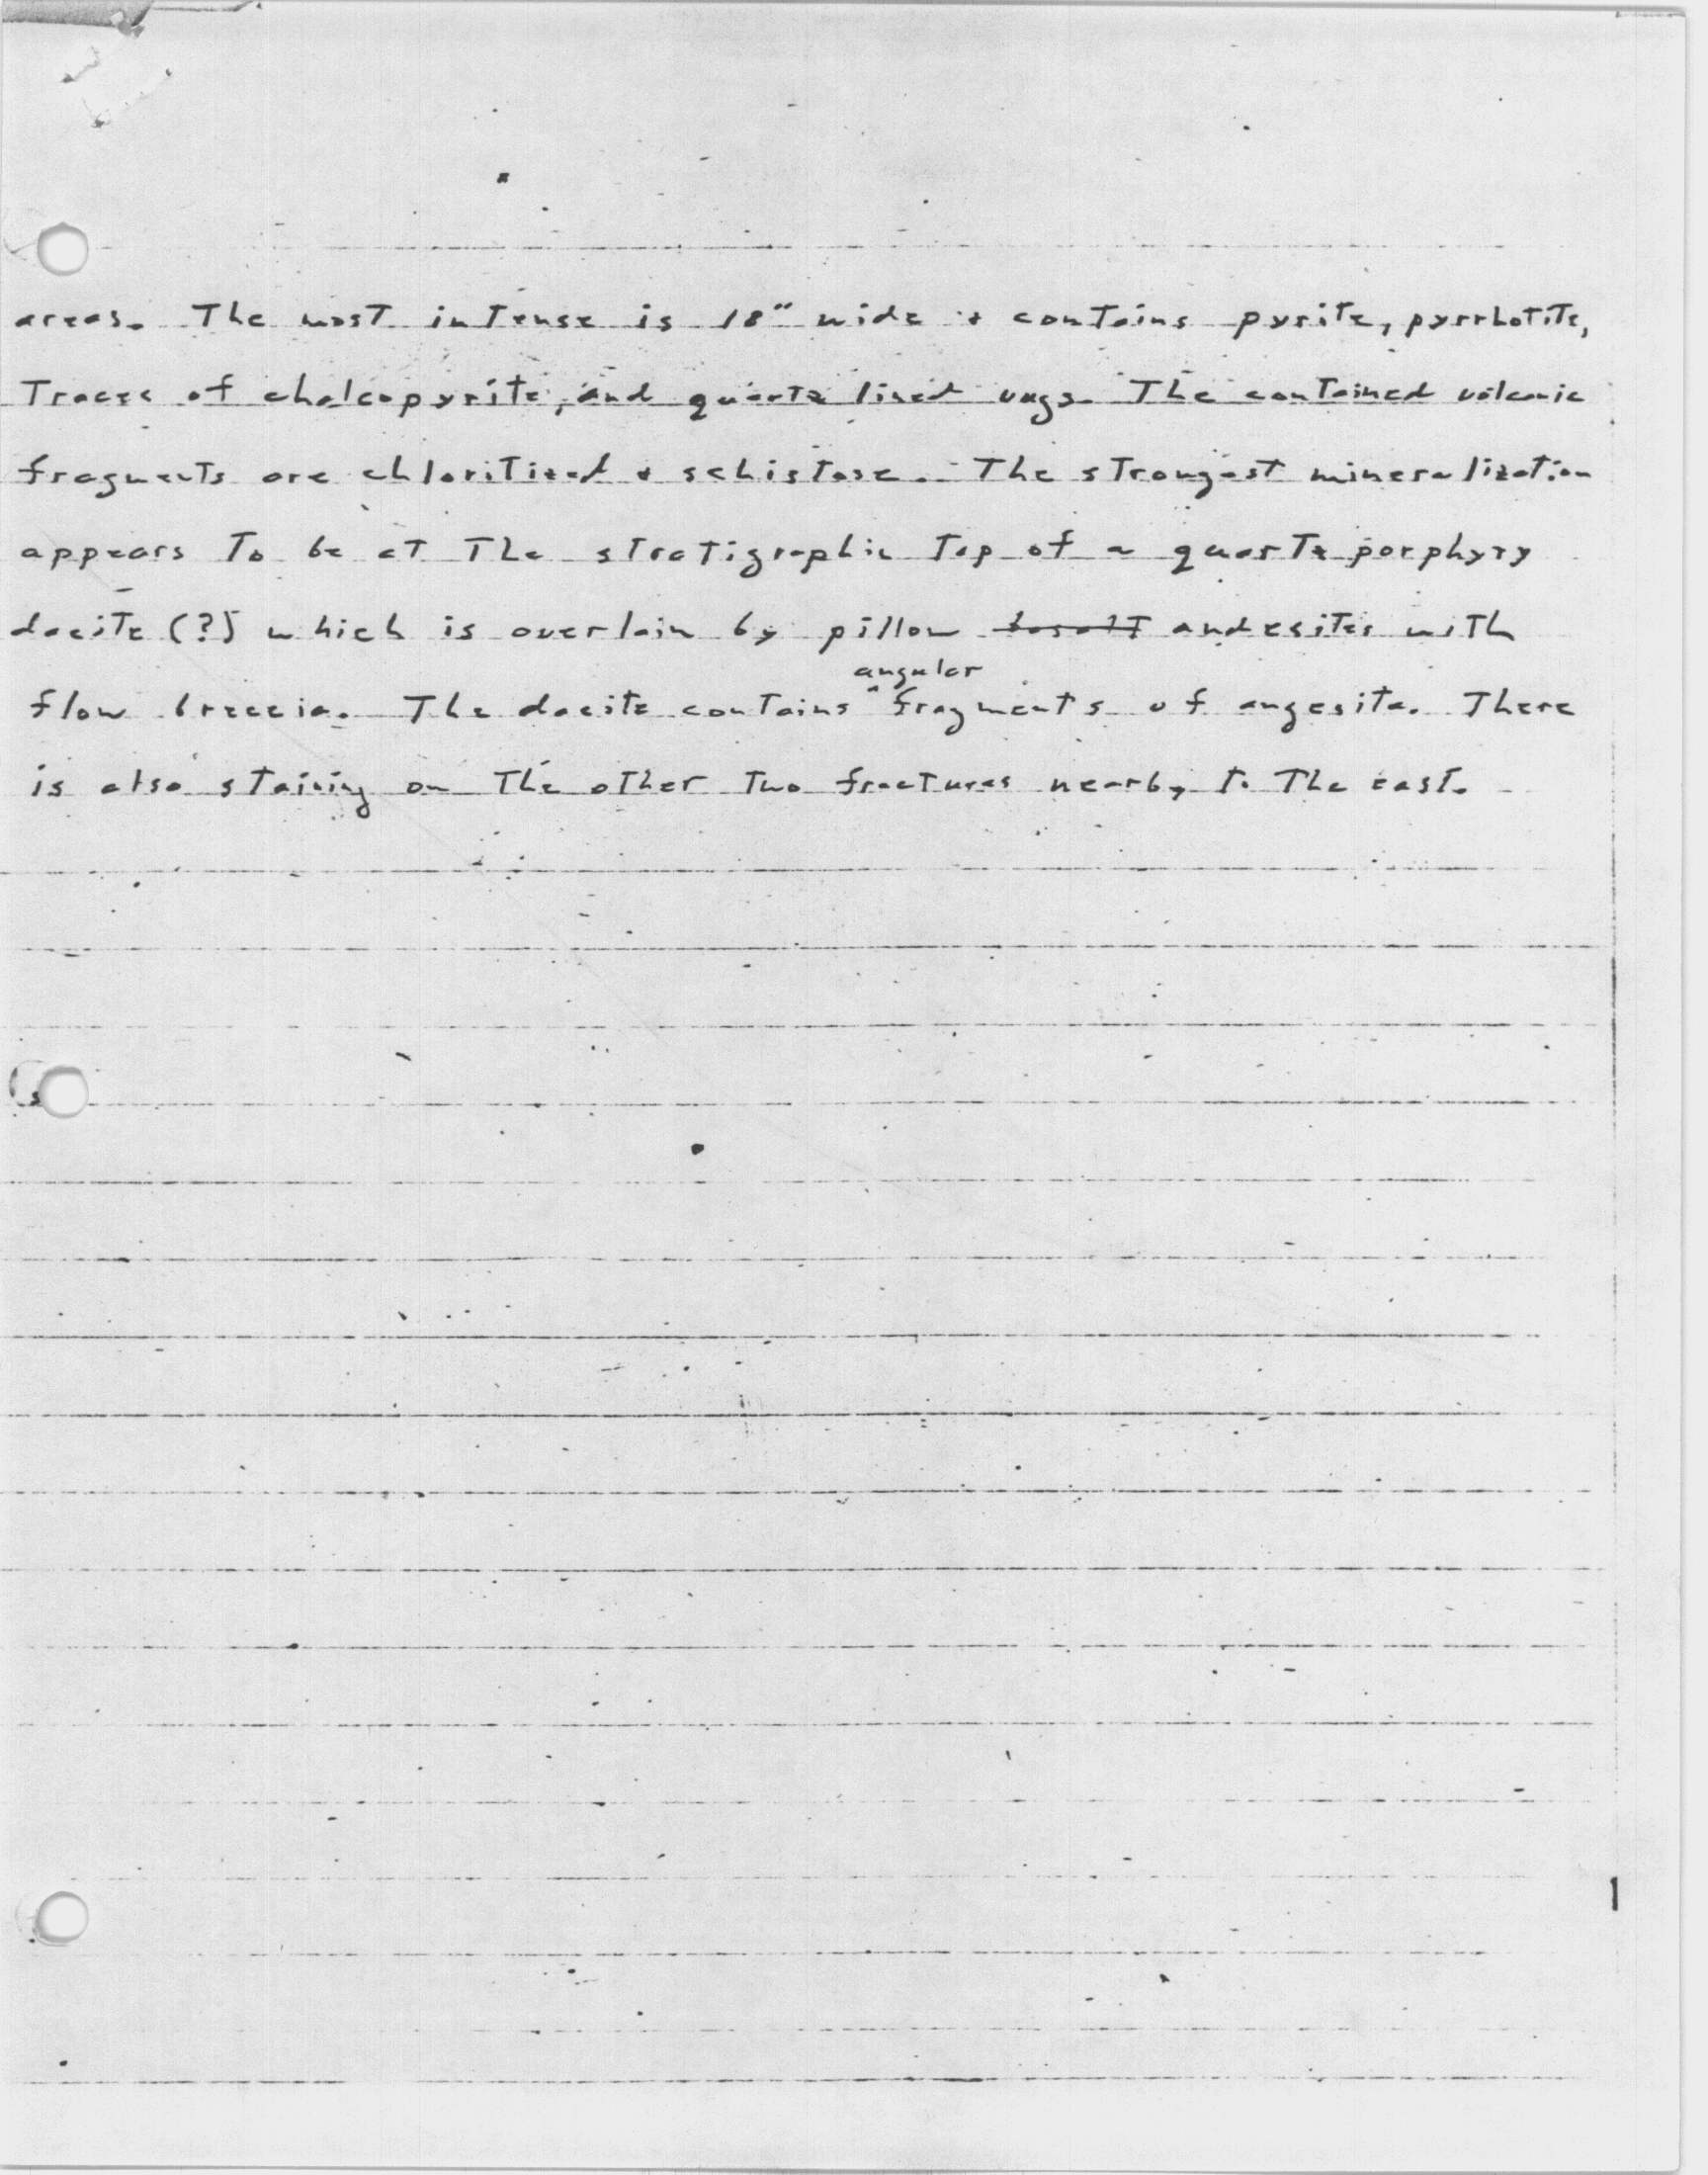 areas. The most intense is 18" wide + contains pyrite, pyrrhotite,
Traces of chalcopyrite, and quartz lined vugs. The contained volcanic
fragments are chloritized + schistose. The strongest mineralization
appears To be at The stratigraphic Top of a quartz porphyry
dacite (?) which is overlain by pillow basalt andesites with
angular
flow breccia. The dacite contains ^ fragments of angesite. There
is also staining on The other Two fractures nearby To The east.